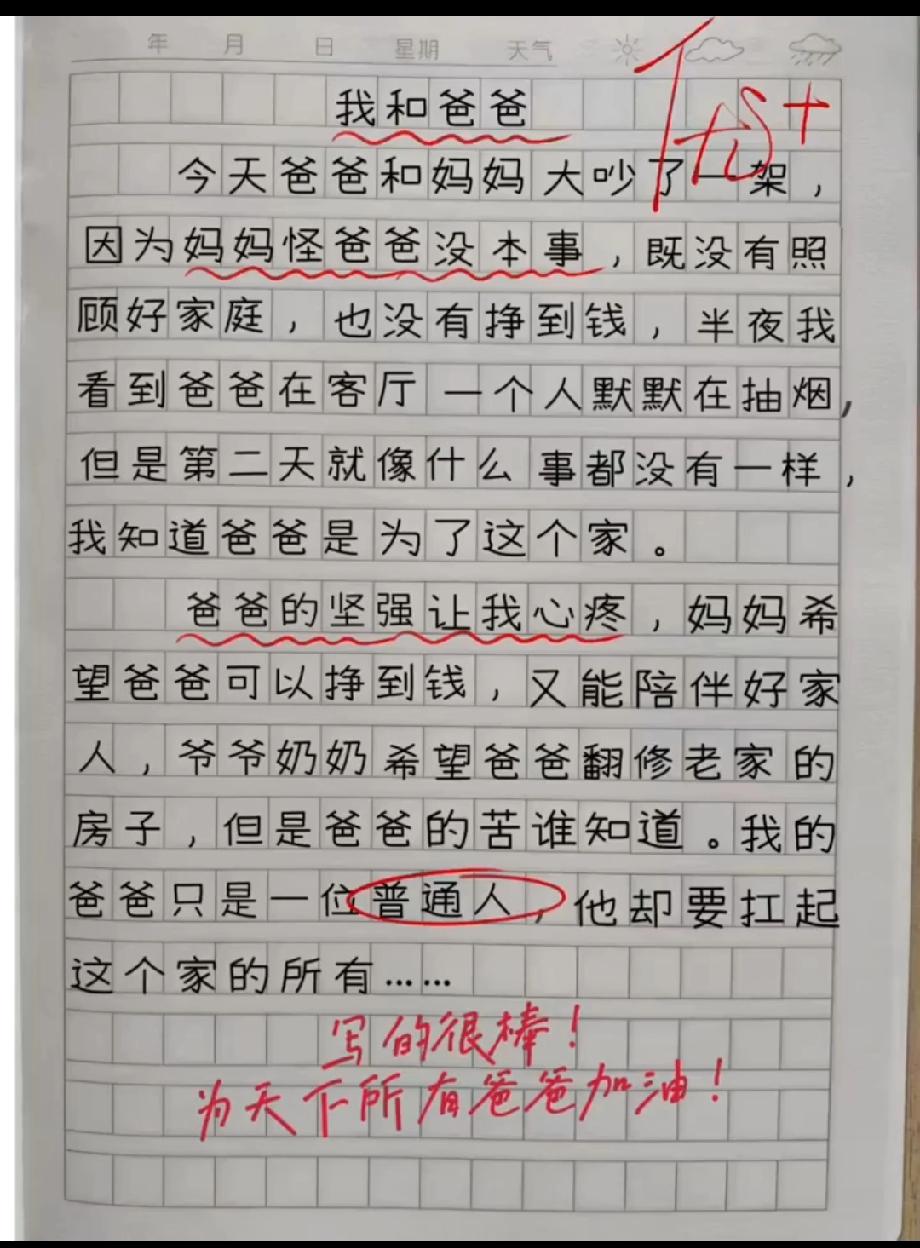 年 月 日 星期 天气
我和爸爸
今天爸爸和妈妈大吵了一架，
因为妈妈怪爸爸没本事，既没有照
顾好家庭，也没有挣到钱，半夜我
看到爸爸在客厅一个人默默在抽烟，
但是第二天就像什么事都没有一样，
我知道爸爸是为了这个家。
爸爸的坚强让我心疼，妈妈希
望爸爸可以挣到钱，又能陪伴好家
人，爷爷奶奶希望爸爸翻修老家的
房子，但是爸爸的苦谁知道。我的
爸爸只是一位普通人，他却要扛起
这个家的所有……
写的很棒！
为天下所有爸爸加油！